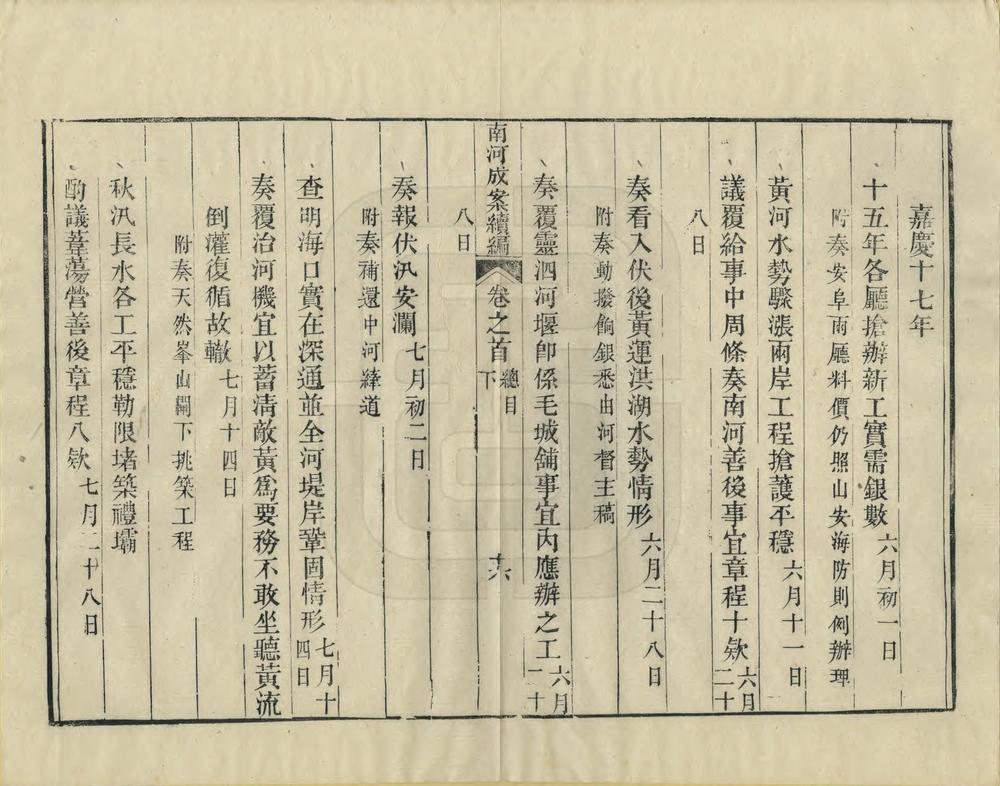 嘉慶十七年
十五年各廳搶辦新工實需銀數 六月初一日
附奏安阜兩廳料價仍照山安海防則例辦理
黃河水勢驟漲兩岸工程搶護平穩 六月十一日
議覆給事中周條奏南河善後事宜章程十欵 六月二十
八日
奏看入伏後黃運洪湖水勢情形 六月二十八日
附奏動撥餉銀悉由河督主稿
奏覆靈泗河堰卽係毛城鋪事宜內應辦之工 六月二十
八日
南河成案續編 卷之首 總目下 十六
奏報伏汛安瀾 七月初二日
附奏補還中河縴道
查明海口實在深通並全河堤岸鞏固情形 七月十四日
奏覆治河機宜以蓄淸敵黃爲要務不敢坐聽黃流
倒灌復循故轍 七月十四日
附奏天然峯山閘下挑築工程
秋汛長水各工平穩勒限堵築禮壩
酌議葦蕩營善後章程八欵 七月二十八日